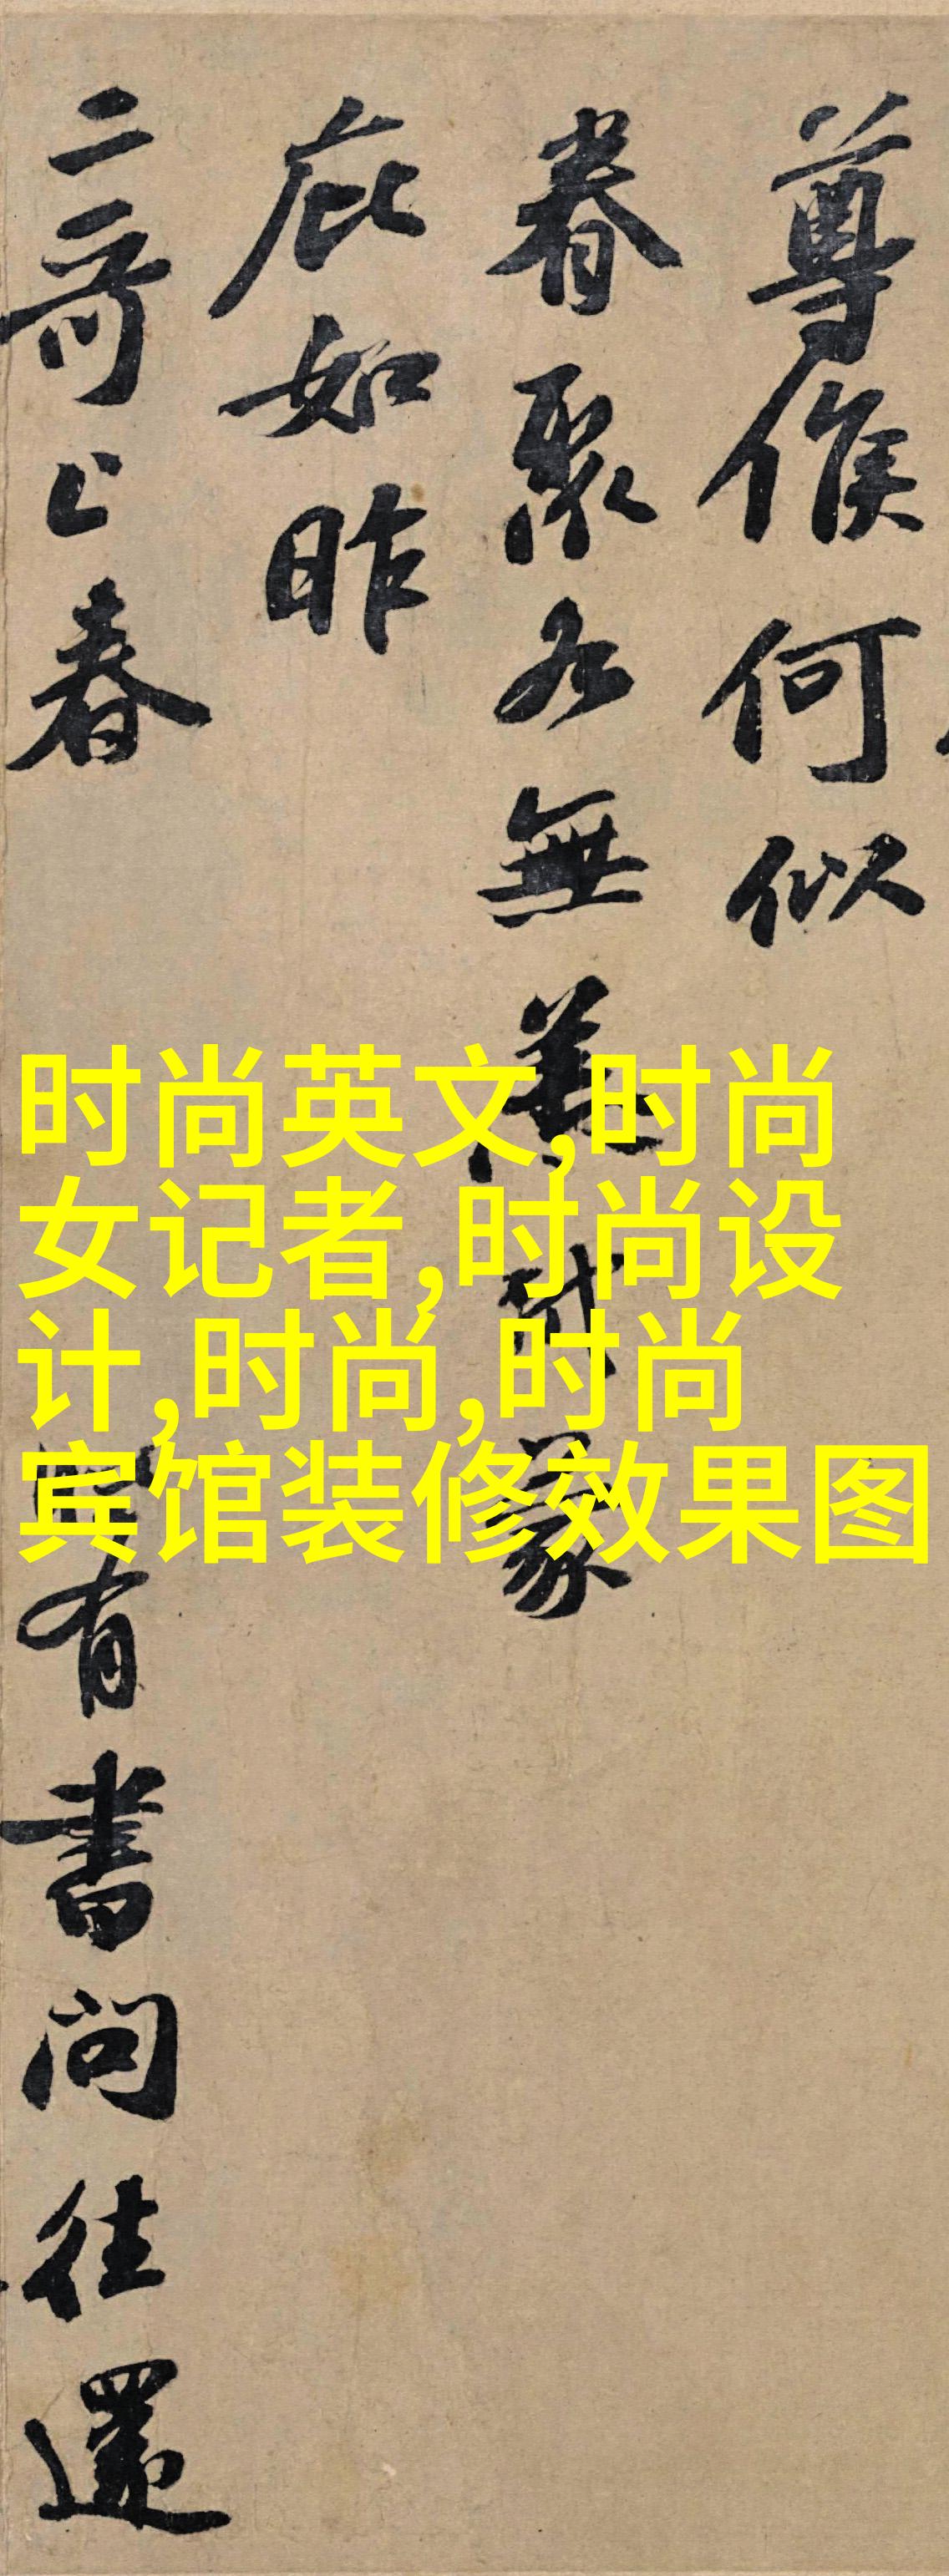 尊候何似
眷聚各無恙蒙
庇如昨
二哥上春有書問往還
时尚英文,时尚
女记者,时尚设
计,时尚,时尚
宾馆装修效果图